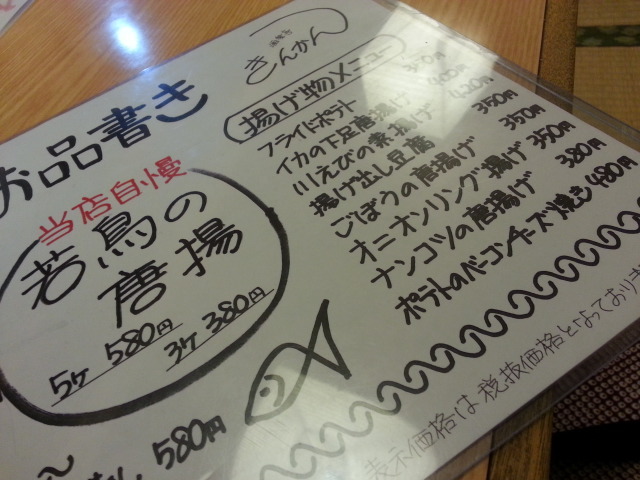 お品書き
きんかん
揚げ物メニュー
フライドポテト 350円
イカの下足唐揚げ 400円
川えびの素揚げ 420円
揚げ出し豆腐 350円
ごぼうの唐揚げ 350円
オニオンリング揚げ 350円
ナンコツの唐揚げ 380円
ポテトのベーコンチーズ焼き 480円
当店自慢
若鳥の
唐揚
5ヶ 580円
3ヶ 380円
580円
表示価格は税抜価格となっております